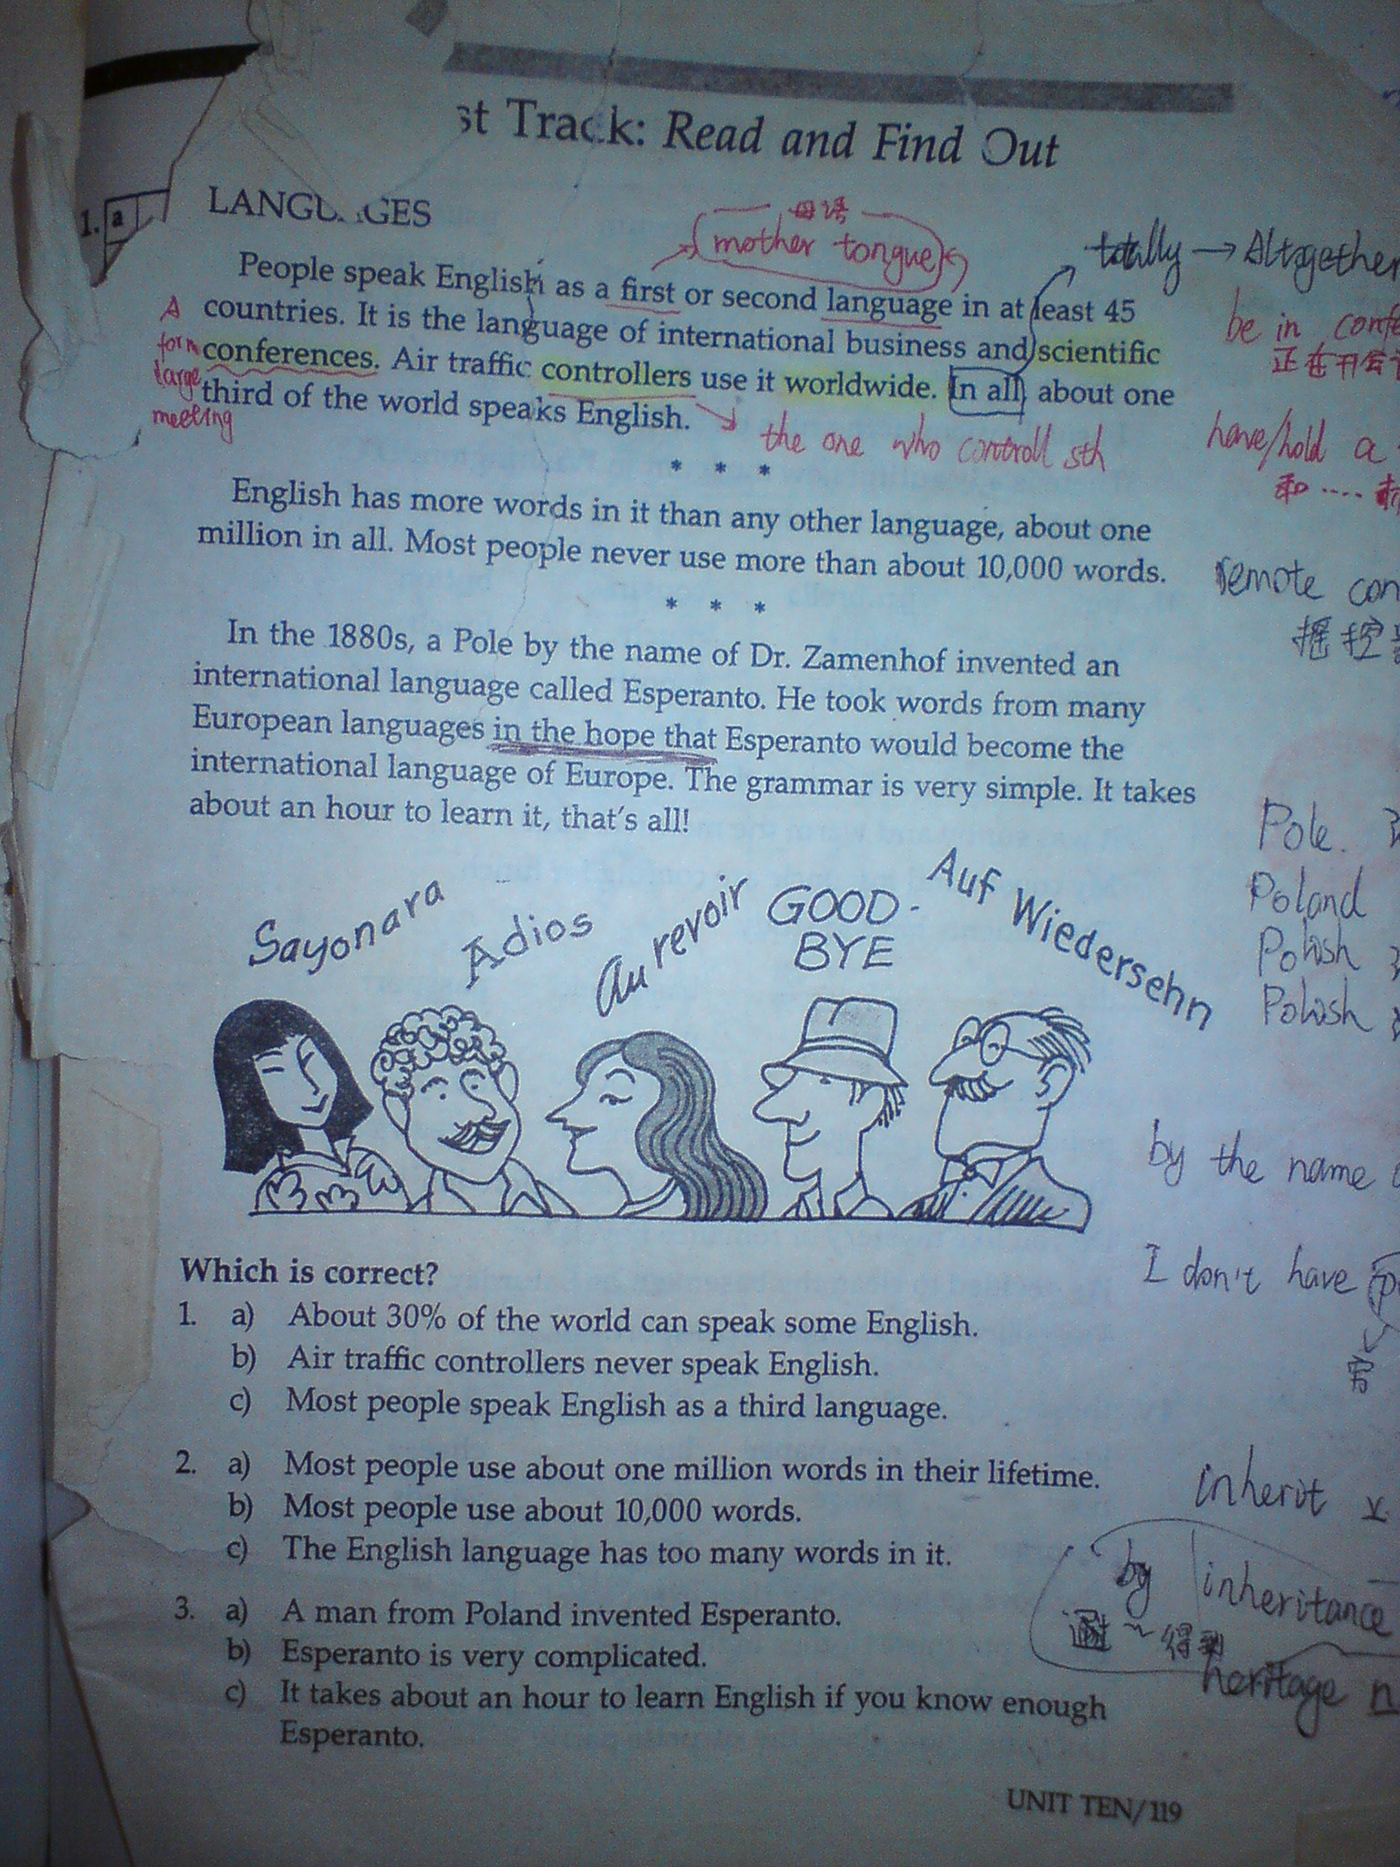 Track: Read and Find Out
1. a
LANGUAGES
母语
mother tongue
totally → Altogether
People speak English as a first or second language in at least 45
countries. It is the language of international business and scientific
conferences. Air traffic controllers use it worldwide. In all, about one
third of the world speaks English.
A
form
large
meeting
the one who controll sth
be in
正在开会
have/hold a
和 ....
* * *
English has more words in it than any other language, about one
million in all. Most people never use more than about 10,000 words.
remote
摇控
* * *
In the 1880s, a Pole by the name of Dr. Zamenhof invented an
international language called Esperanto. He took words from many
European languages in the hope that Esperanto would become the
international language of Europe. The grammar is very simple. It takes
about an hour to learn it, that's all!
Pole.
Poland
Polish
Polish
Sayonara
Adios
Au revoir
GOOD-
BYE
Auf Wiedersehn
by the name
I don't have
Which is correct?
1. a) About 30% of the world can speak some English.
b) Air traffic controllers never speak English.
c) Most people speak English as a third language.
2. a) Most people use about one million words in their lifetime.
b) Most people use about 10,000 words.
c) The English language has too many words in it.
3. a) A man from Poland invented Esperanto.
b) Esperanto is very complicated.
c) It takes about an hour to learn English if you know enough
Esperanto.
inherit
by inheritance
通 ~ 得到
heritage n
UNIT TEN/119